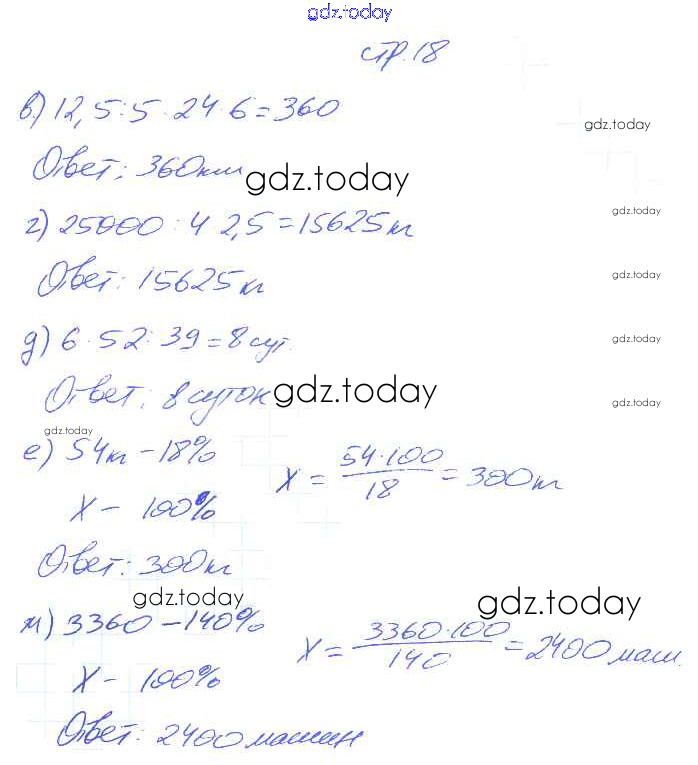 gdz.today
стр. 18
в) 12,5 : 5 · 24 · 6 = 360
gdz.today
Ответ: 360км
gdz.today
г) 25000 : 4 2,5 = 15625кг
gdz.today
Ответ: 15625кг
gdz.today
д) 6 · 52 : 39 = 8 сут.
gdz.today
Ответ: 8 суток
gdz.today
gdz.today
gdz.today
е) 54кг – 18% X = 54·100 / 18 = 300кг
X – 100%
Ответ: 300кг
gdz.today
gdz.today
м) 3360 – 140% X = 3360·100 / 140 = 2400 маш.
X – 100%
Ответ: 2400 машин